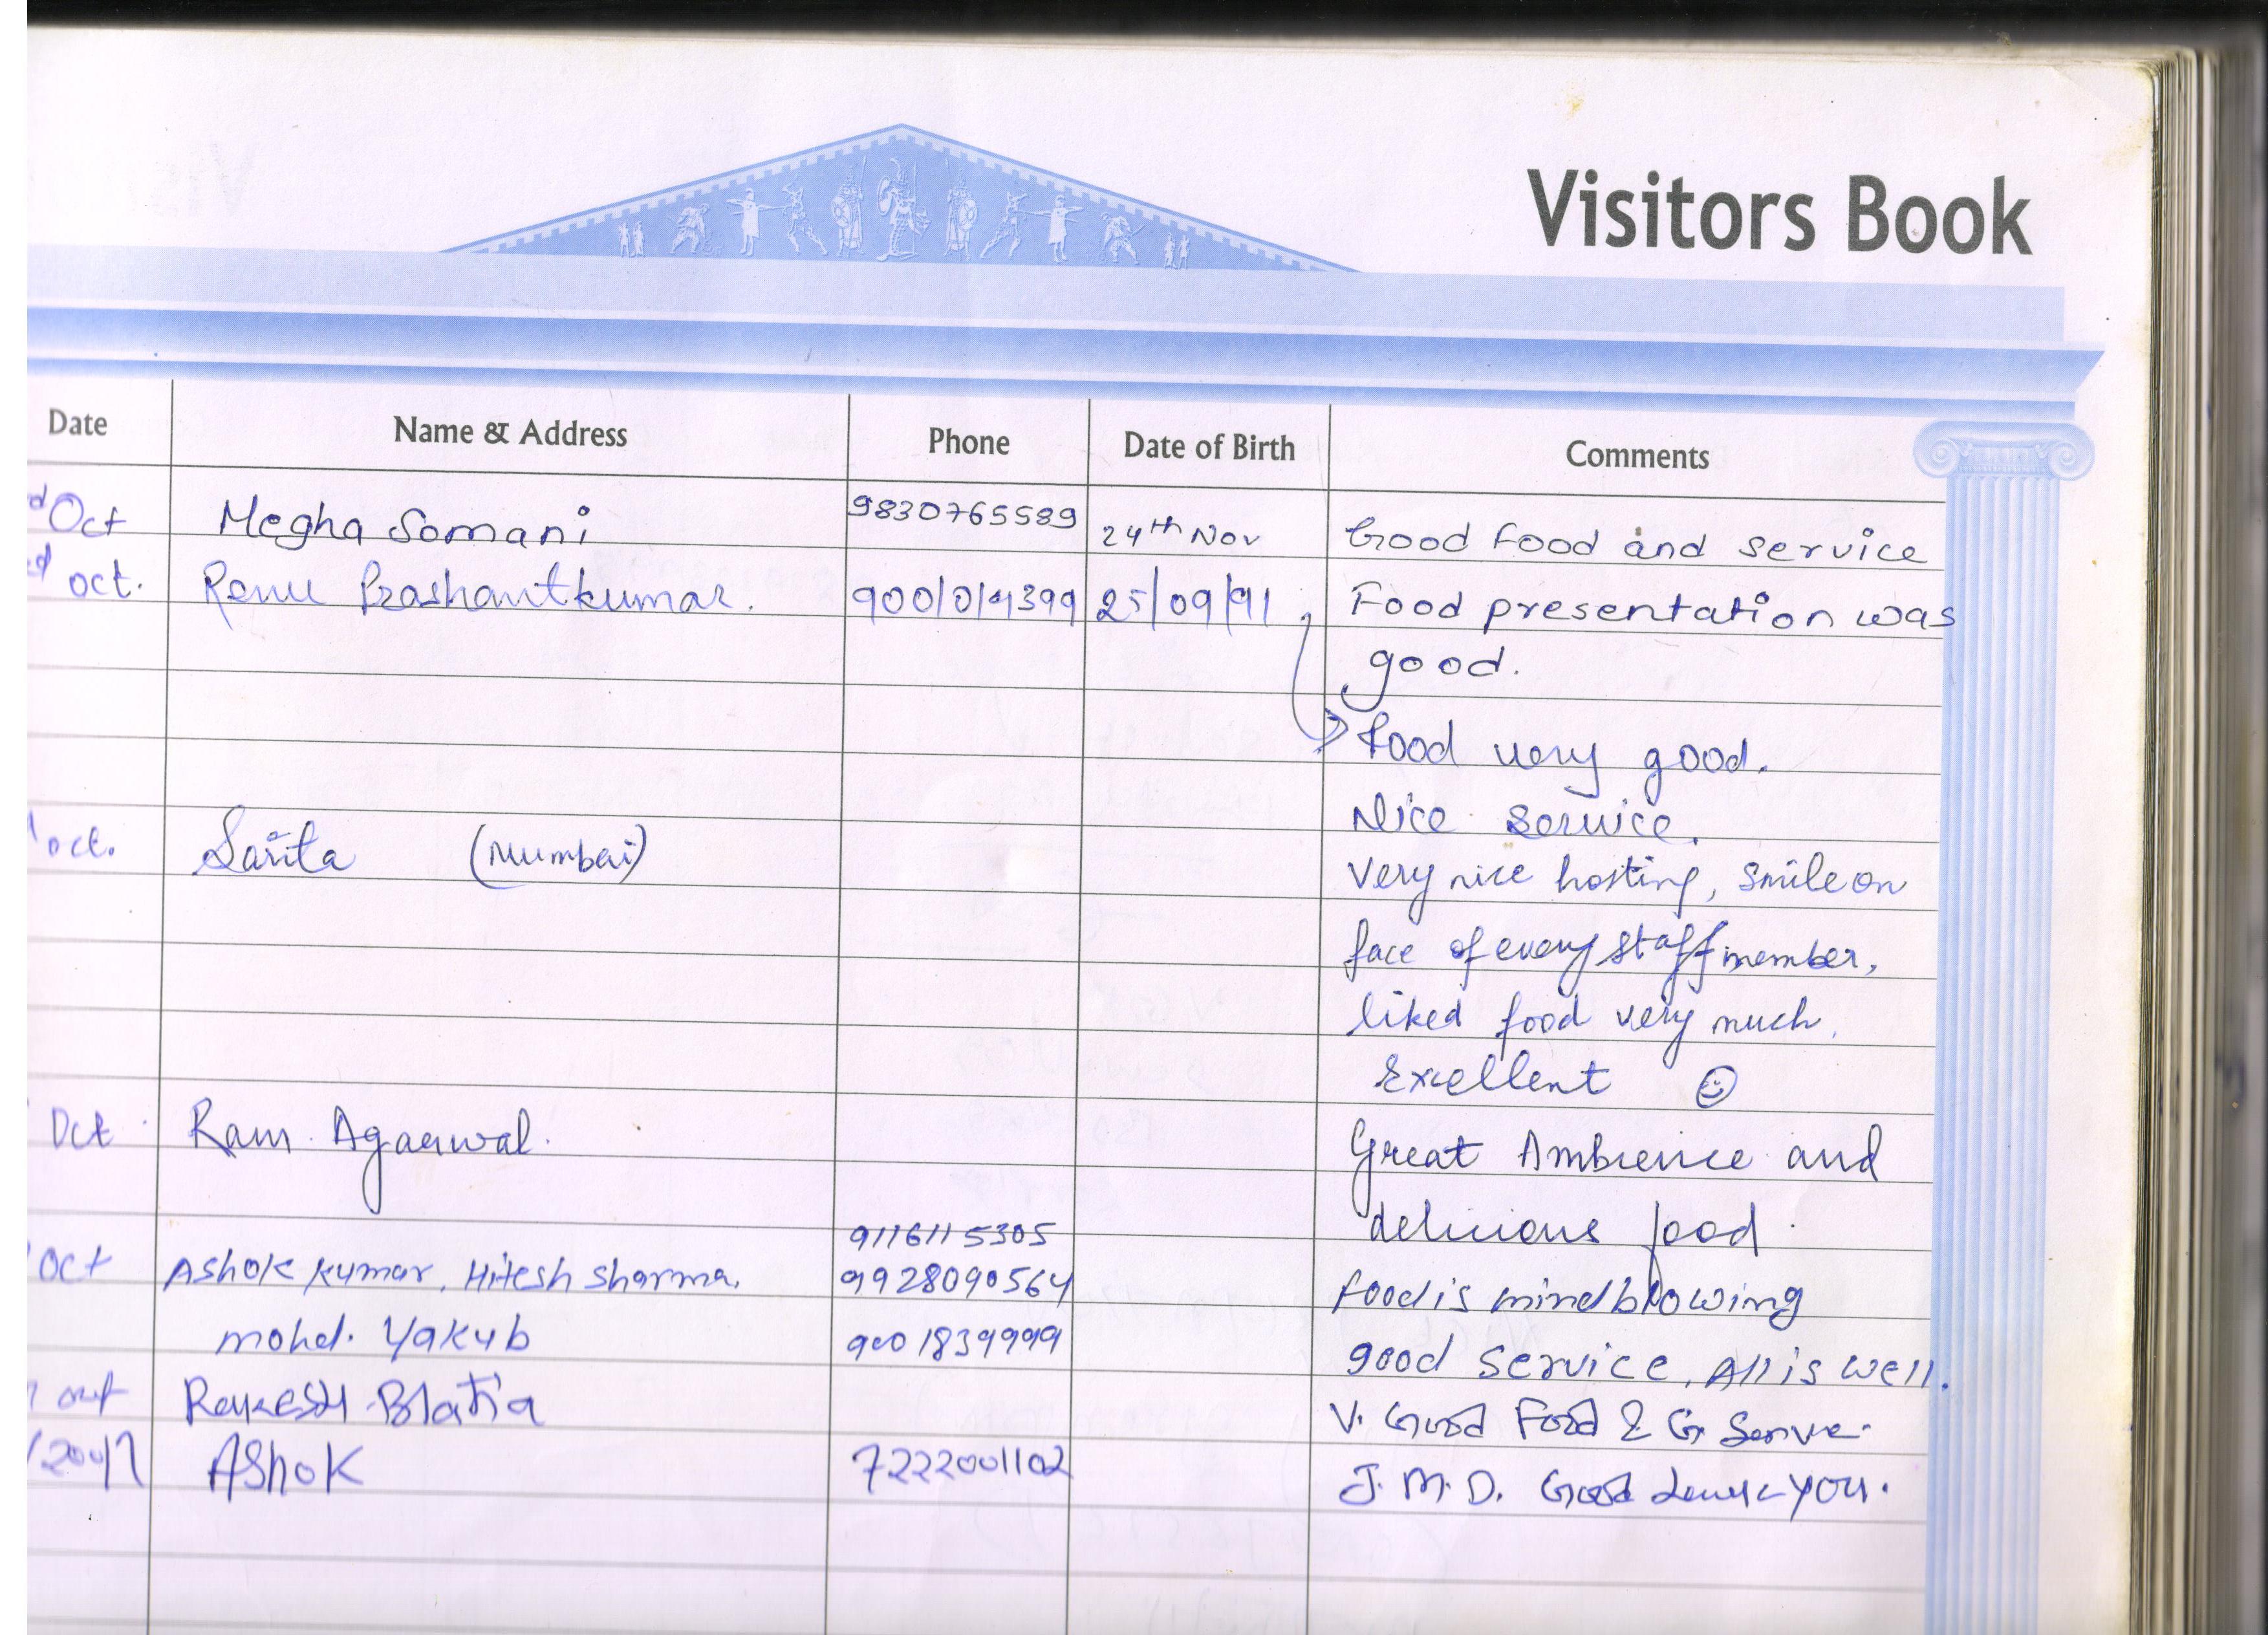 Visitors Book
Date Name & Address Phone Date of Birth Comments
Oct Megha Somani 9830765589 24th Nov Good food and service
oct. Renu Prashantkumar. 25/09/91 Food presentation was
good.
food very good.
Nice service.
oct. Sarita (Mumbai) Very nice hosting, smile on
face of every staff member,
liked food very much.
Excellent
Oct Ram Agarwal. Great Ambience and
delicious food.
9116115305
Oct Ashok kumar, Hitesh Sharma, 9928090564 food is mind blowing
mohd. Yakub 9001839999 good service, All is well.
Rakesh Bhatia V. Good Food & G. Serve.
Ashok 7222001102 J. M. D. Good you.